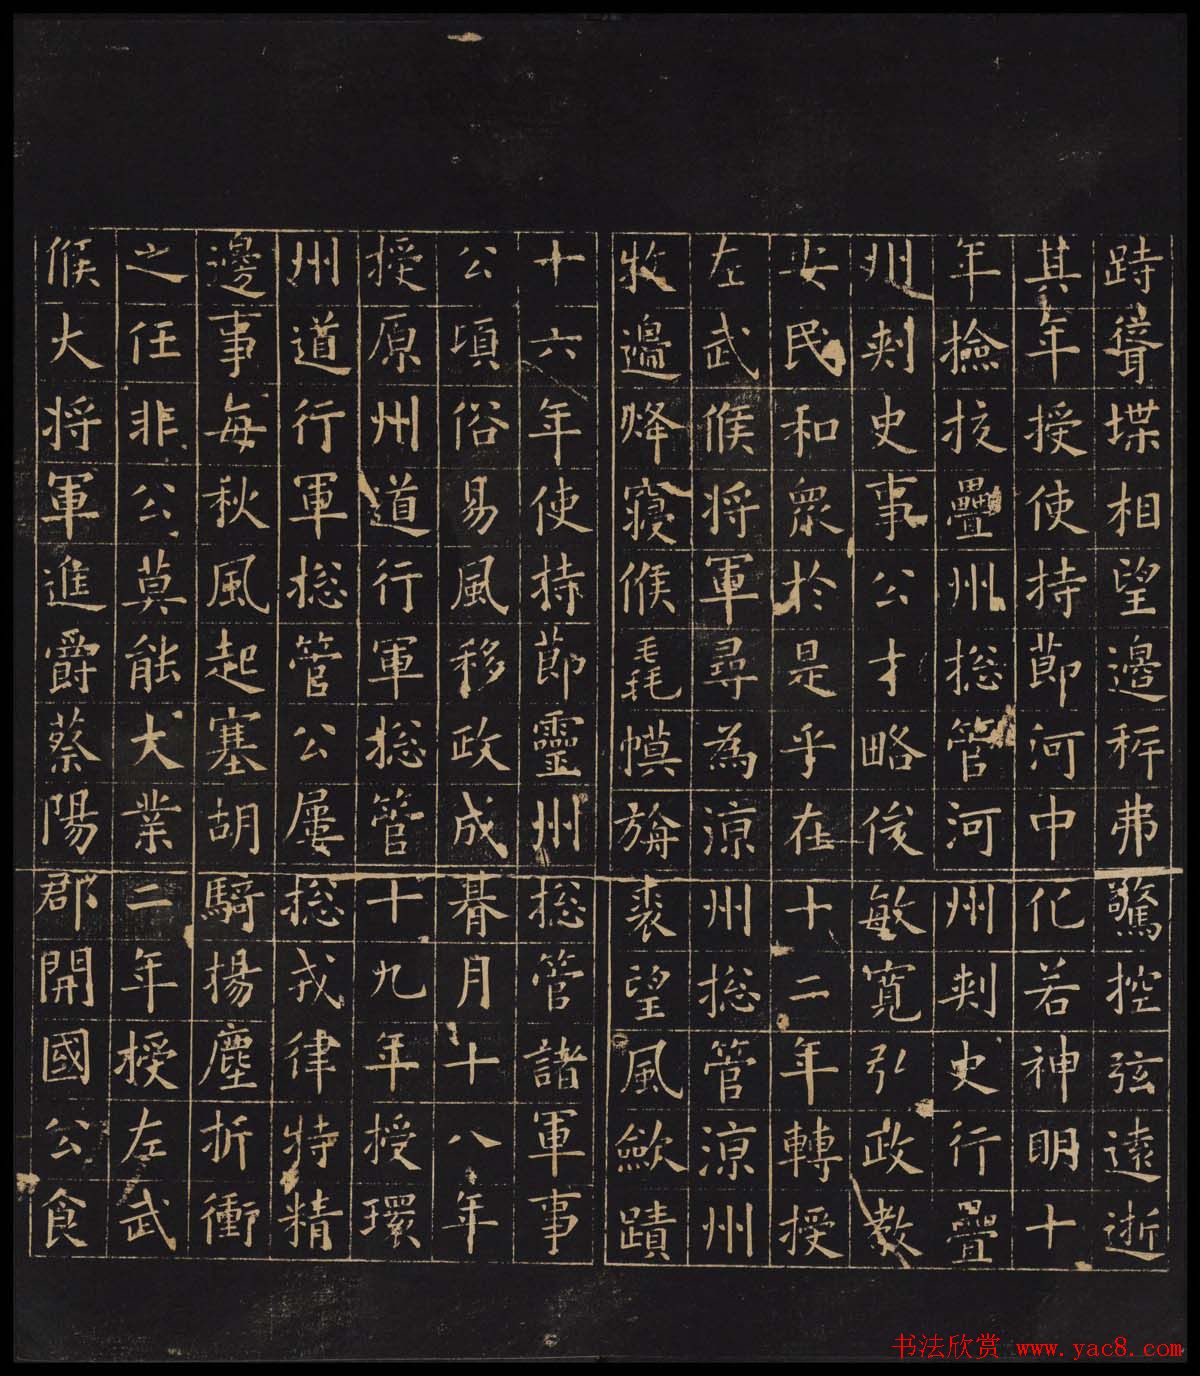 跱聳堞相望邊秤弗驚控弦遠逝
其年授使持節河中化若神明十
年撿挍疊州捴管河州刾史行疊
州刾史事公才略俊敏寬弘政教
安民和衆於是乎在十二年轉授
左武候將軍尋為涼州捴管涼州
牧邊烽寢候毳幙旃裘望風歛蹟
十六年使持節靈州捴管諸軍事
公頃俗易風移政成朞月十八年
授原州道行軍捴管十九年授環
州道行軍捴管公屢捴戎律特精
邊事每秋風起塞胡騎揚塵折衝
之任非公莫能大業二年授左武
候大将軍進爵蔡陽郡開國公食
书法欣赏 www.yac8.com